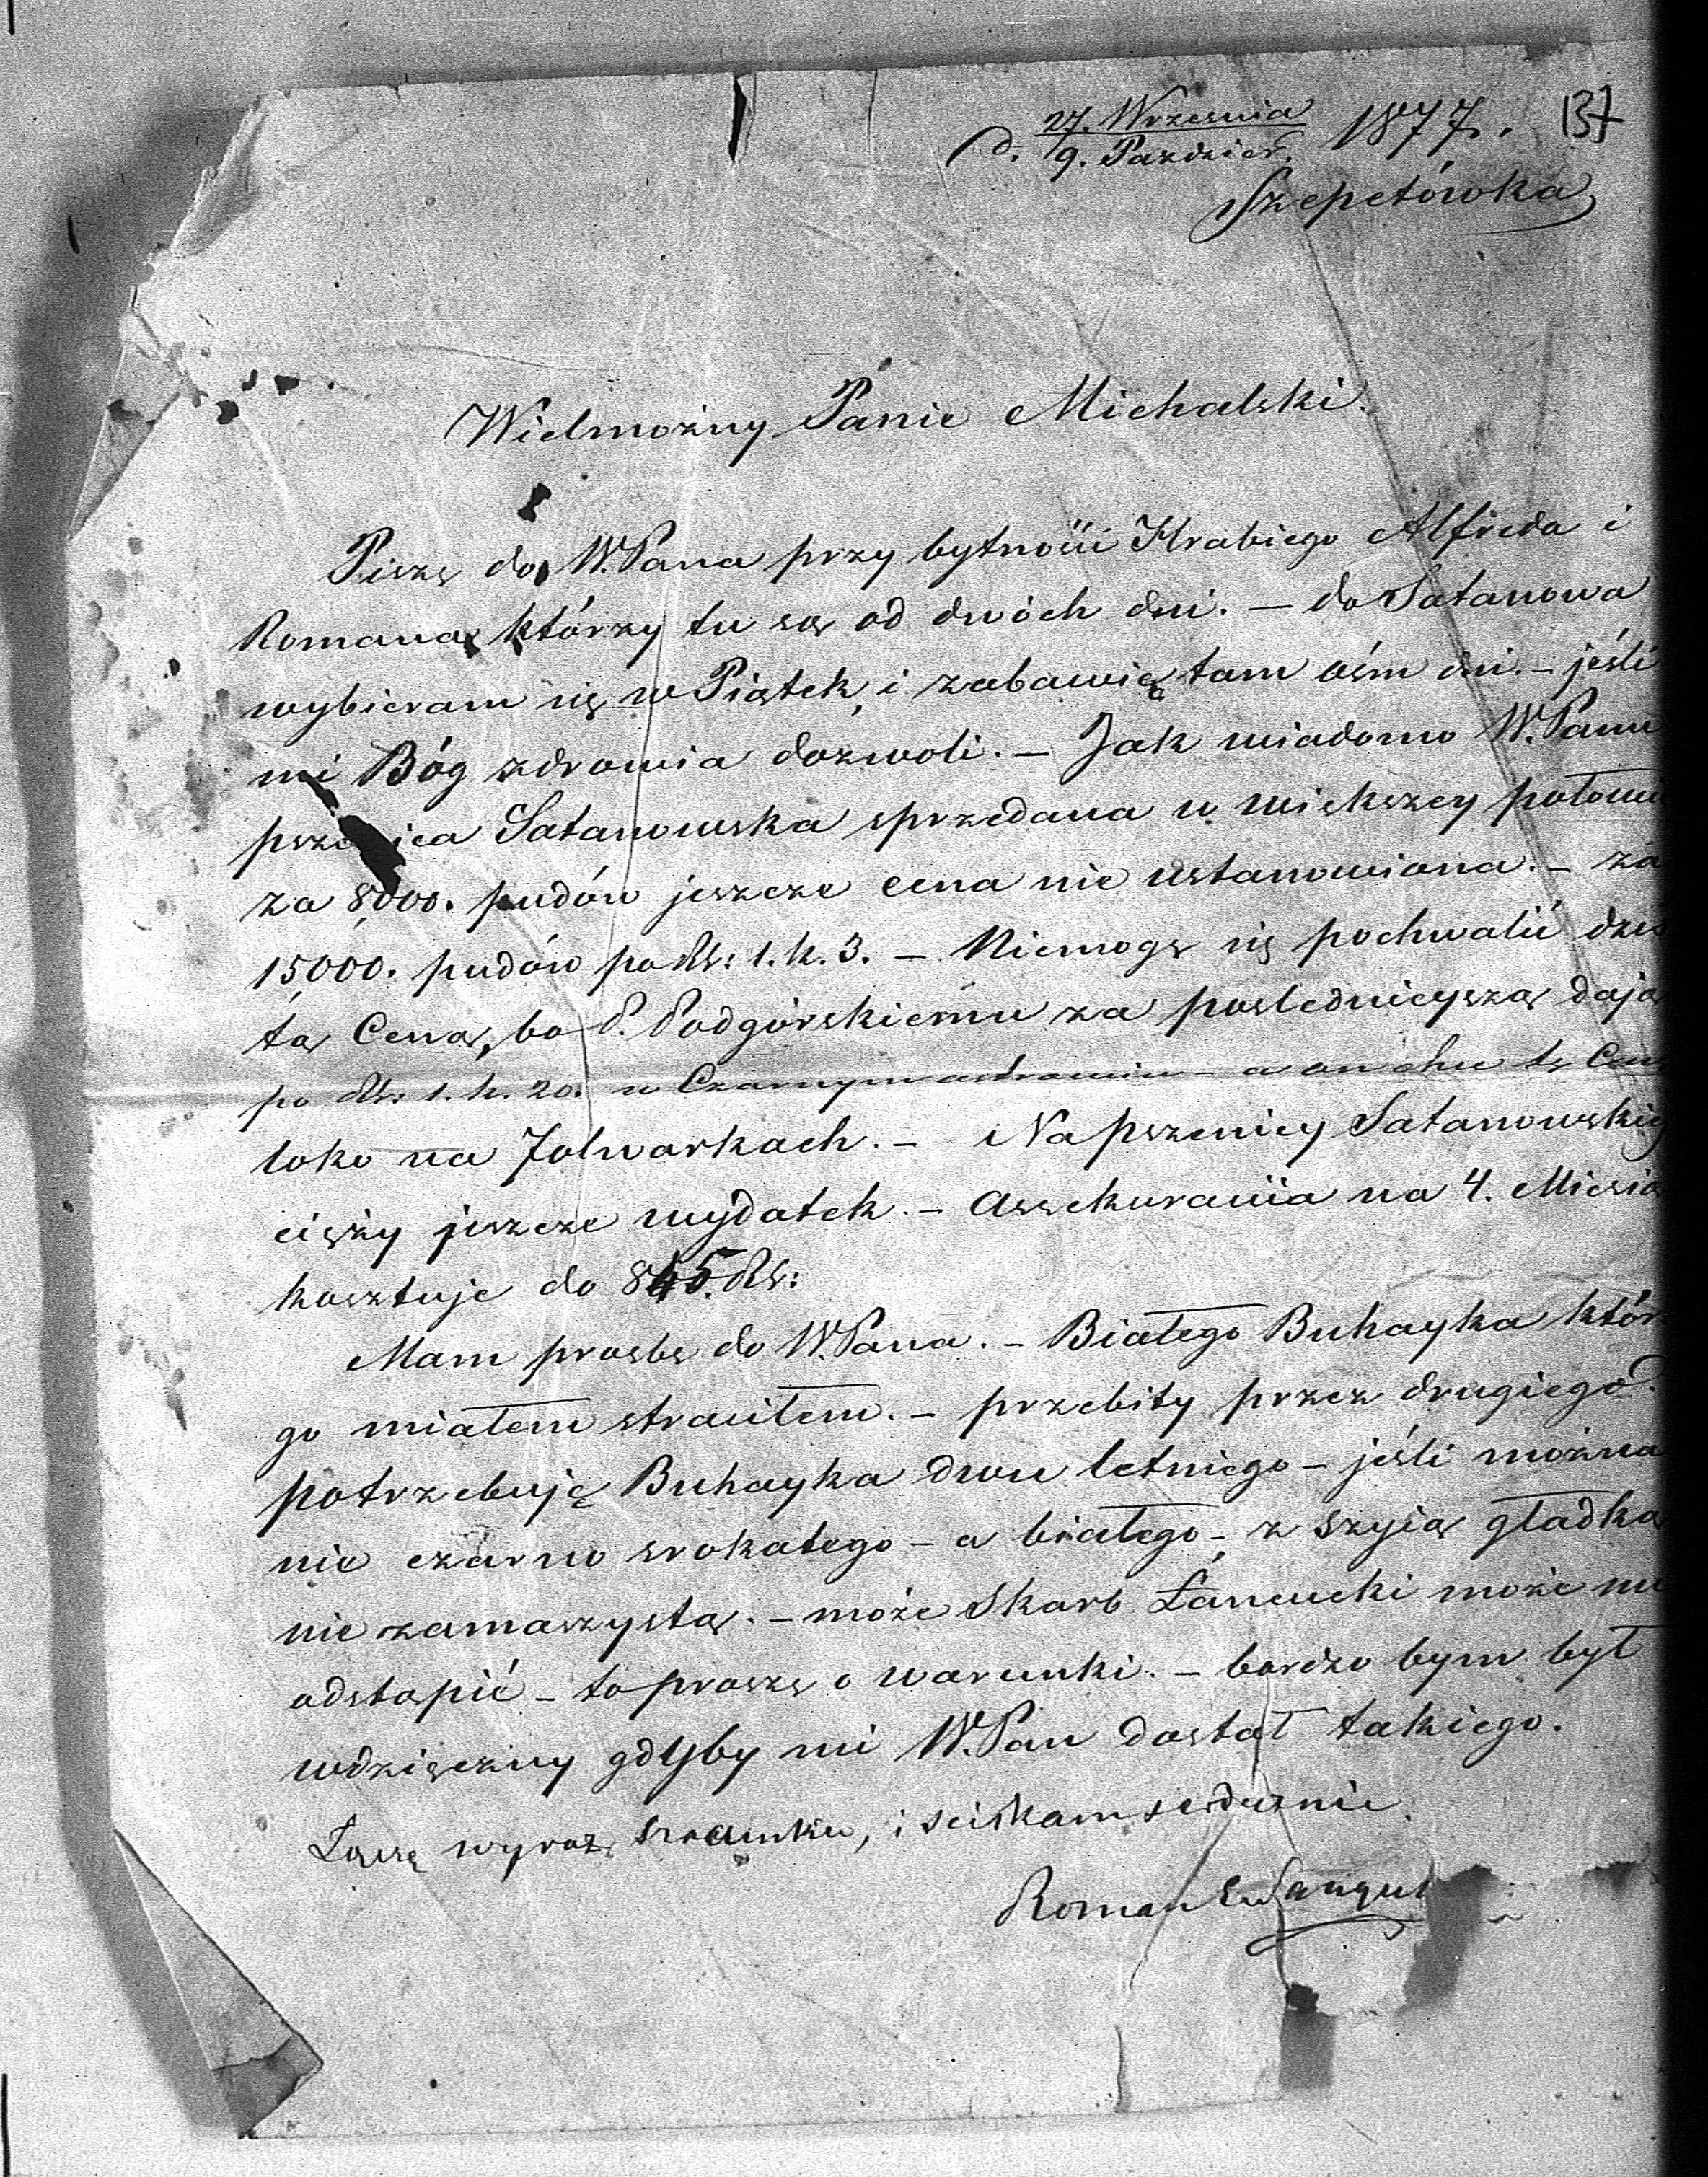 137
d. 27. Września 1877.
9. Paździer.
Szepetówka
Wielmożny Panie Michalski.
Piszę do W.Pana przy bytności Hrabiego Alfreda i
Romana, którzy tu są od dwóch dni. — do Satanowa
wybieram się w Piątek, i zabawię tam ośm dni. — jeśli
mi Bóg zdrowia dozwoli. — Jak wiadomo W.Panu
Satanowska sprzedana w większey połowi
za 8,000. pudów jeszcze cena nie ustanowiona. — za
15,000. pudów po Rs: 1. k. 3. — Niemogę się pochwalić
tą Ceną, bo P. Podgórskiemu za poslednieyszą dają
po Rs: 1. k. 20. w Czarnymostrowiu — a on chce tę
loko na Folwarkach. — Na pszenicy Satanowskiey
cięży jeszcze wydatek. — Assekuracia na 4. Miesią
kosztuje do 845. Rs:
Mam prosbę do W.Pana. — Białego Buhayka któr
go miałem straciłem. — przebity przez drugiego.
potrzebuję Buhayka dwu letniego — jeśli można
nie czarno srokatego — a białego — z szyią gładką
nie zamaszystą. — może Skarb Łancucki może mi
odstąpić — to proszę o warunki. — bardzo bym był
wdzięczny gdyby mi W.Pan dostał takiego.
Łączę wyraz szacunku, i sciskam serdecznie.
Roman Sangusz